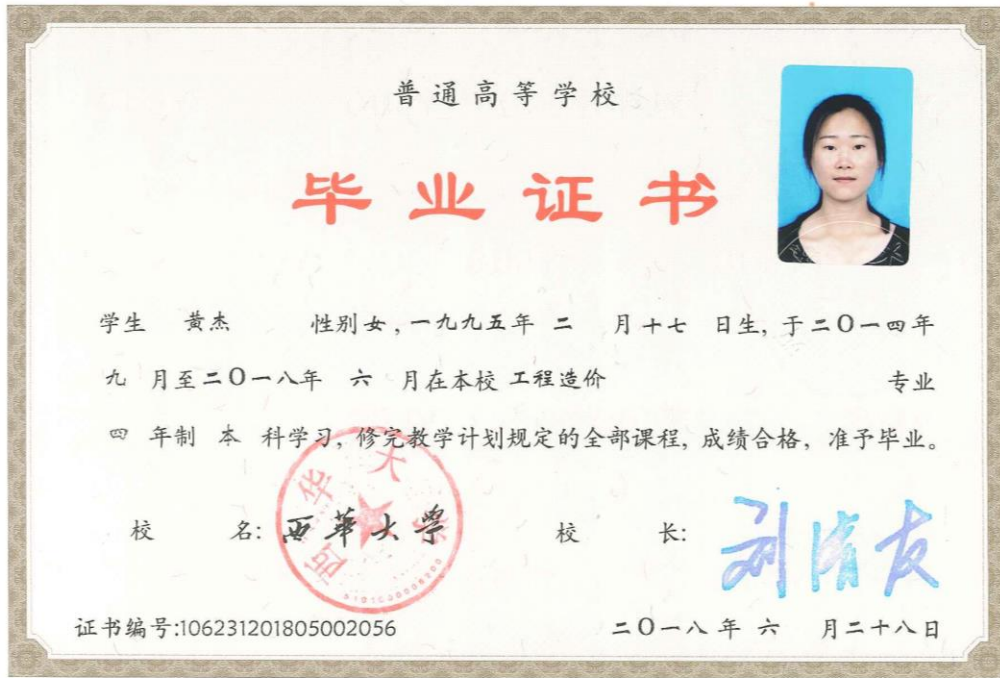 普通高等学校
毕业证书
学生 黄杰 性别女,一九九五年 二 月十七 日生,于二〇一四年
九 月至二〇一八年 六 月在本校 工程造价 专业
四 年制 本 科学习,修完教学计划规定的全部课程,成绩合格,准予毕业。
校 名: 西華大學 校 长: 刘清友
西华大学
证书编号:106231201805002056 二〇一八年 六 月二十八日